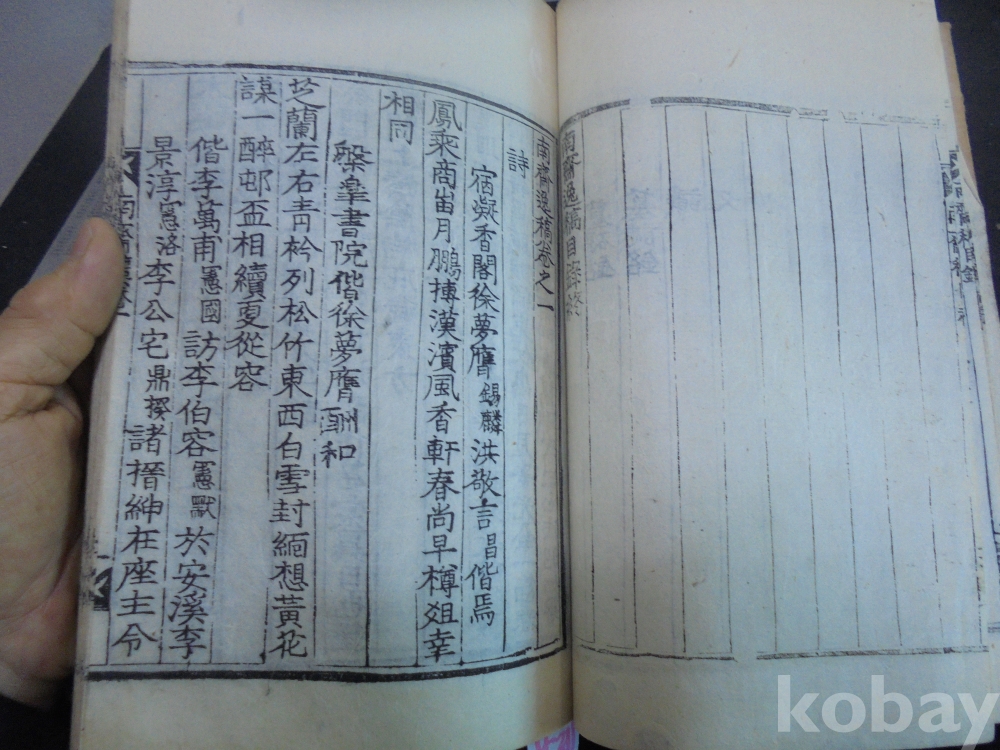 南齋逸稿目錄終
南齋逸稿卷之一
詩
宿凝香閣徐夢膺錫麟洪敬言昌偕焉
鳳乘商岫月鵬搏漢濱風香軒春尚早樽俎幸
相同
槃皐書院偕徐夢膺酬和
芝蘭左右靑衿列松竹東西白雪封緬想黃花
謀一醉邨盃相續更從容
偕李萬甫憲國訪李伯容憲猷於安溪李
景淳憲洛李公宅鼎揆諸搢紳在座主令
kobay